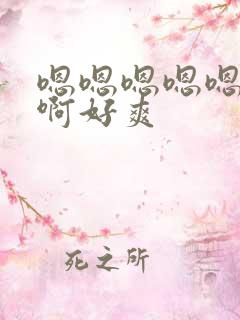 嗯嗯嗯嗯嗯
啊好爽
死之所